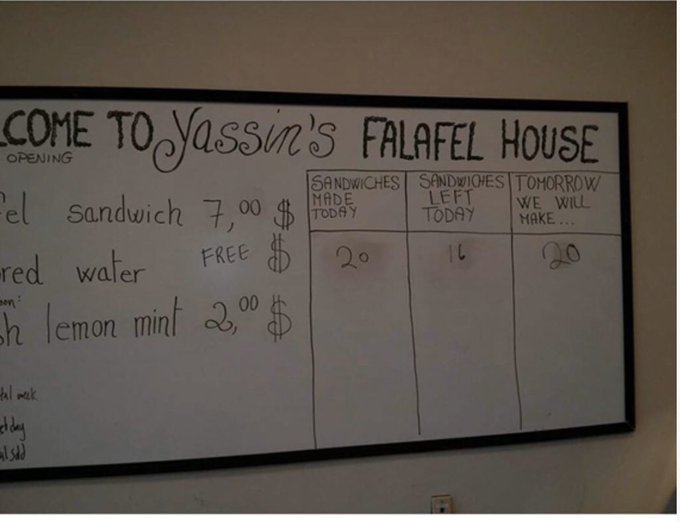 COME TO Yassin's FALAFEL HOUSE
OPENING
el sandwich 7,00 $
red water FREE $
h lemon mint 2,00 $
week
day
SANDWICHES MADE TODAY
20
SANDWICHES LEFT TODAY
16
TOMORROW WE WILL MAKE...
20